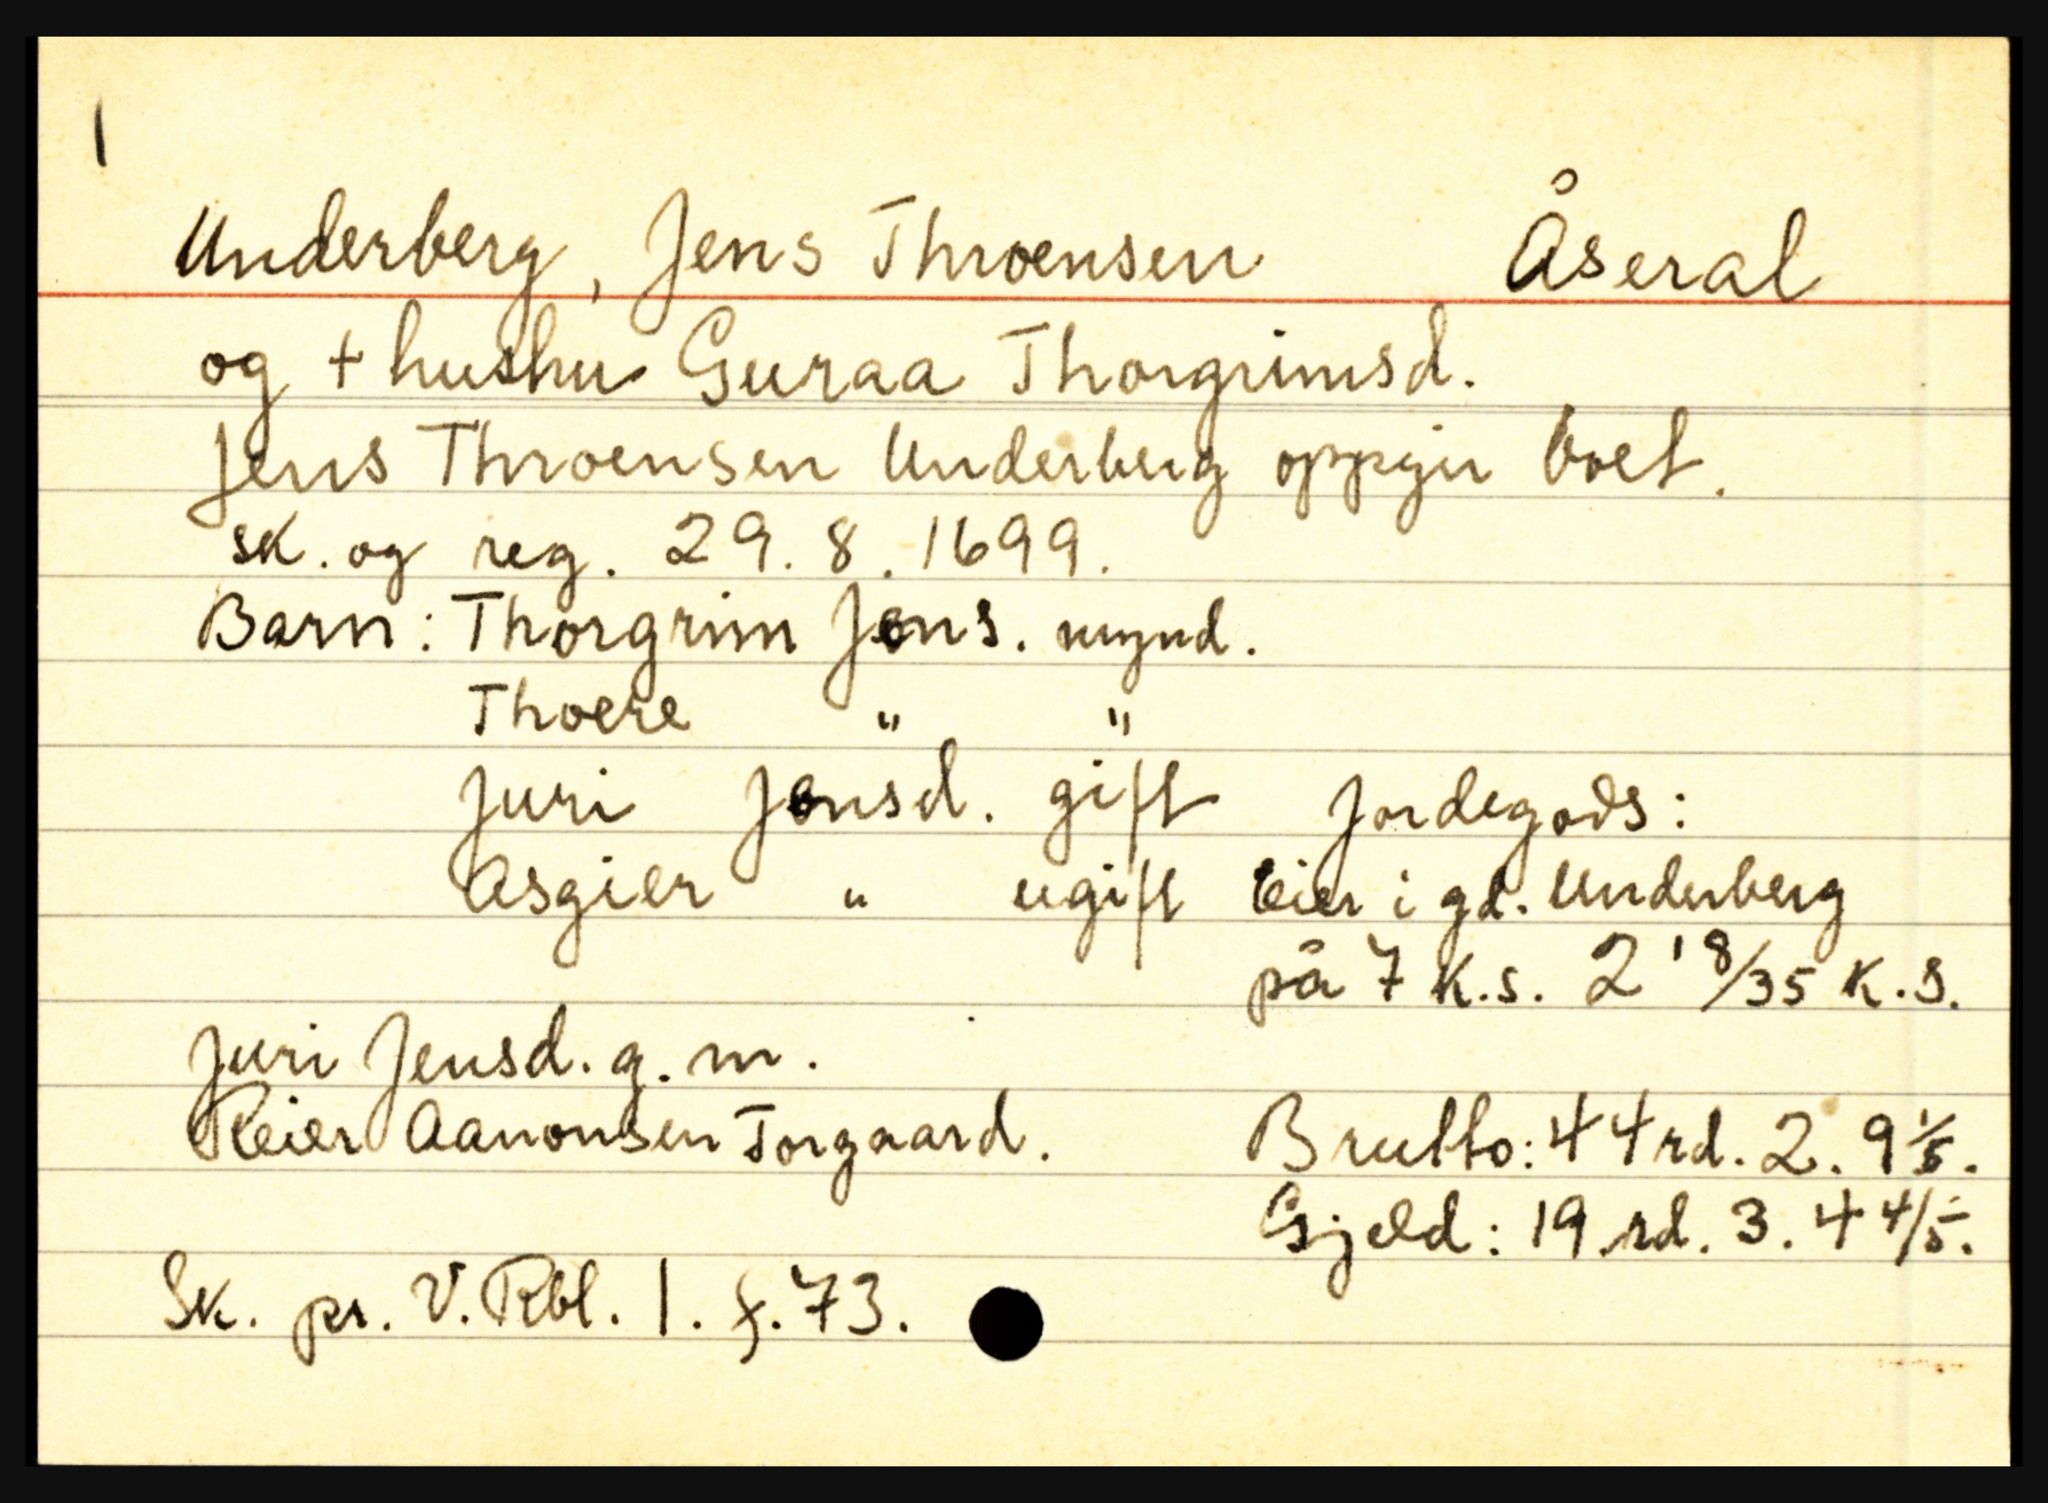 1
Underberg, Jens Throensen Åseral
og + hushu Guraa Thorgrimsd.
Jens Throensen Underberg oppgir boet.
sk. og reg. 29. 8. 1699.
Barn: Thorgrim Jens. mynd.
Thoere " "
Juri Jensd. gift Jordegods:
Asgier " ugift Eier i gd. Underberg
på 7 k.s. 2 18/35 k.s.
Juri Jensd. g. m.
Reier Aanonsen Torgaard. Brutto: 44 rd. 2. 9 1/5.
Gjeld: 19 rd. 3. 4 4/5.
Sk. pr. V. Rbl. 1. f. 73.